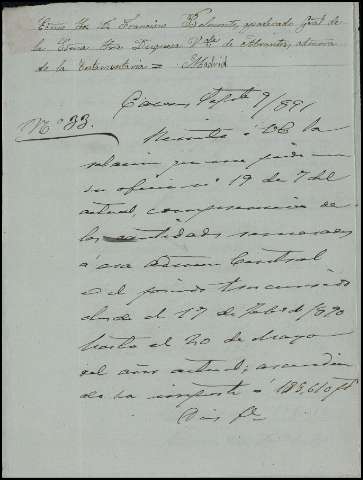 Excmo Sor Dn Francisco Belmonte, apoderado gral de
la Excma Sra Duquesa Vda de Abrantes, admora
de la Testamentaria = Madrid
Caceres Agosto 9/891
No 83.
Remito á VE la
relacion que me pide en
su oficio no 19 de 7 del
actual, comprensiva de
las cantidades remesadas
á esa Admon Central
en el periodo trascurrido
desde el 17 de Febro de /890
hasta el 20 de Mayo
del año actual; ascendien
do su importe á 183,610
Dios